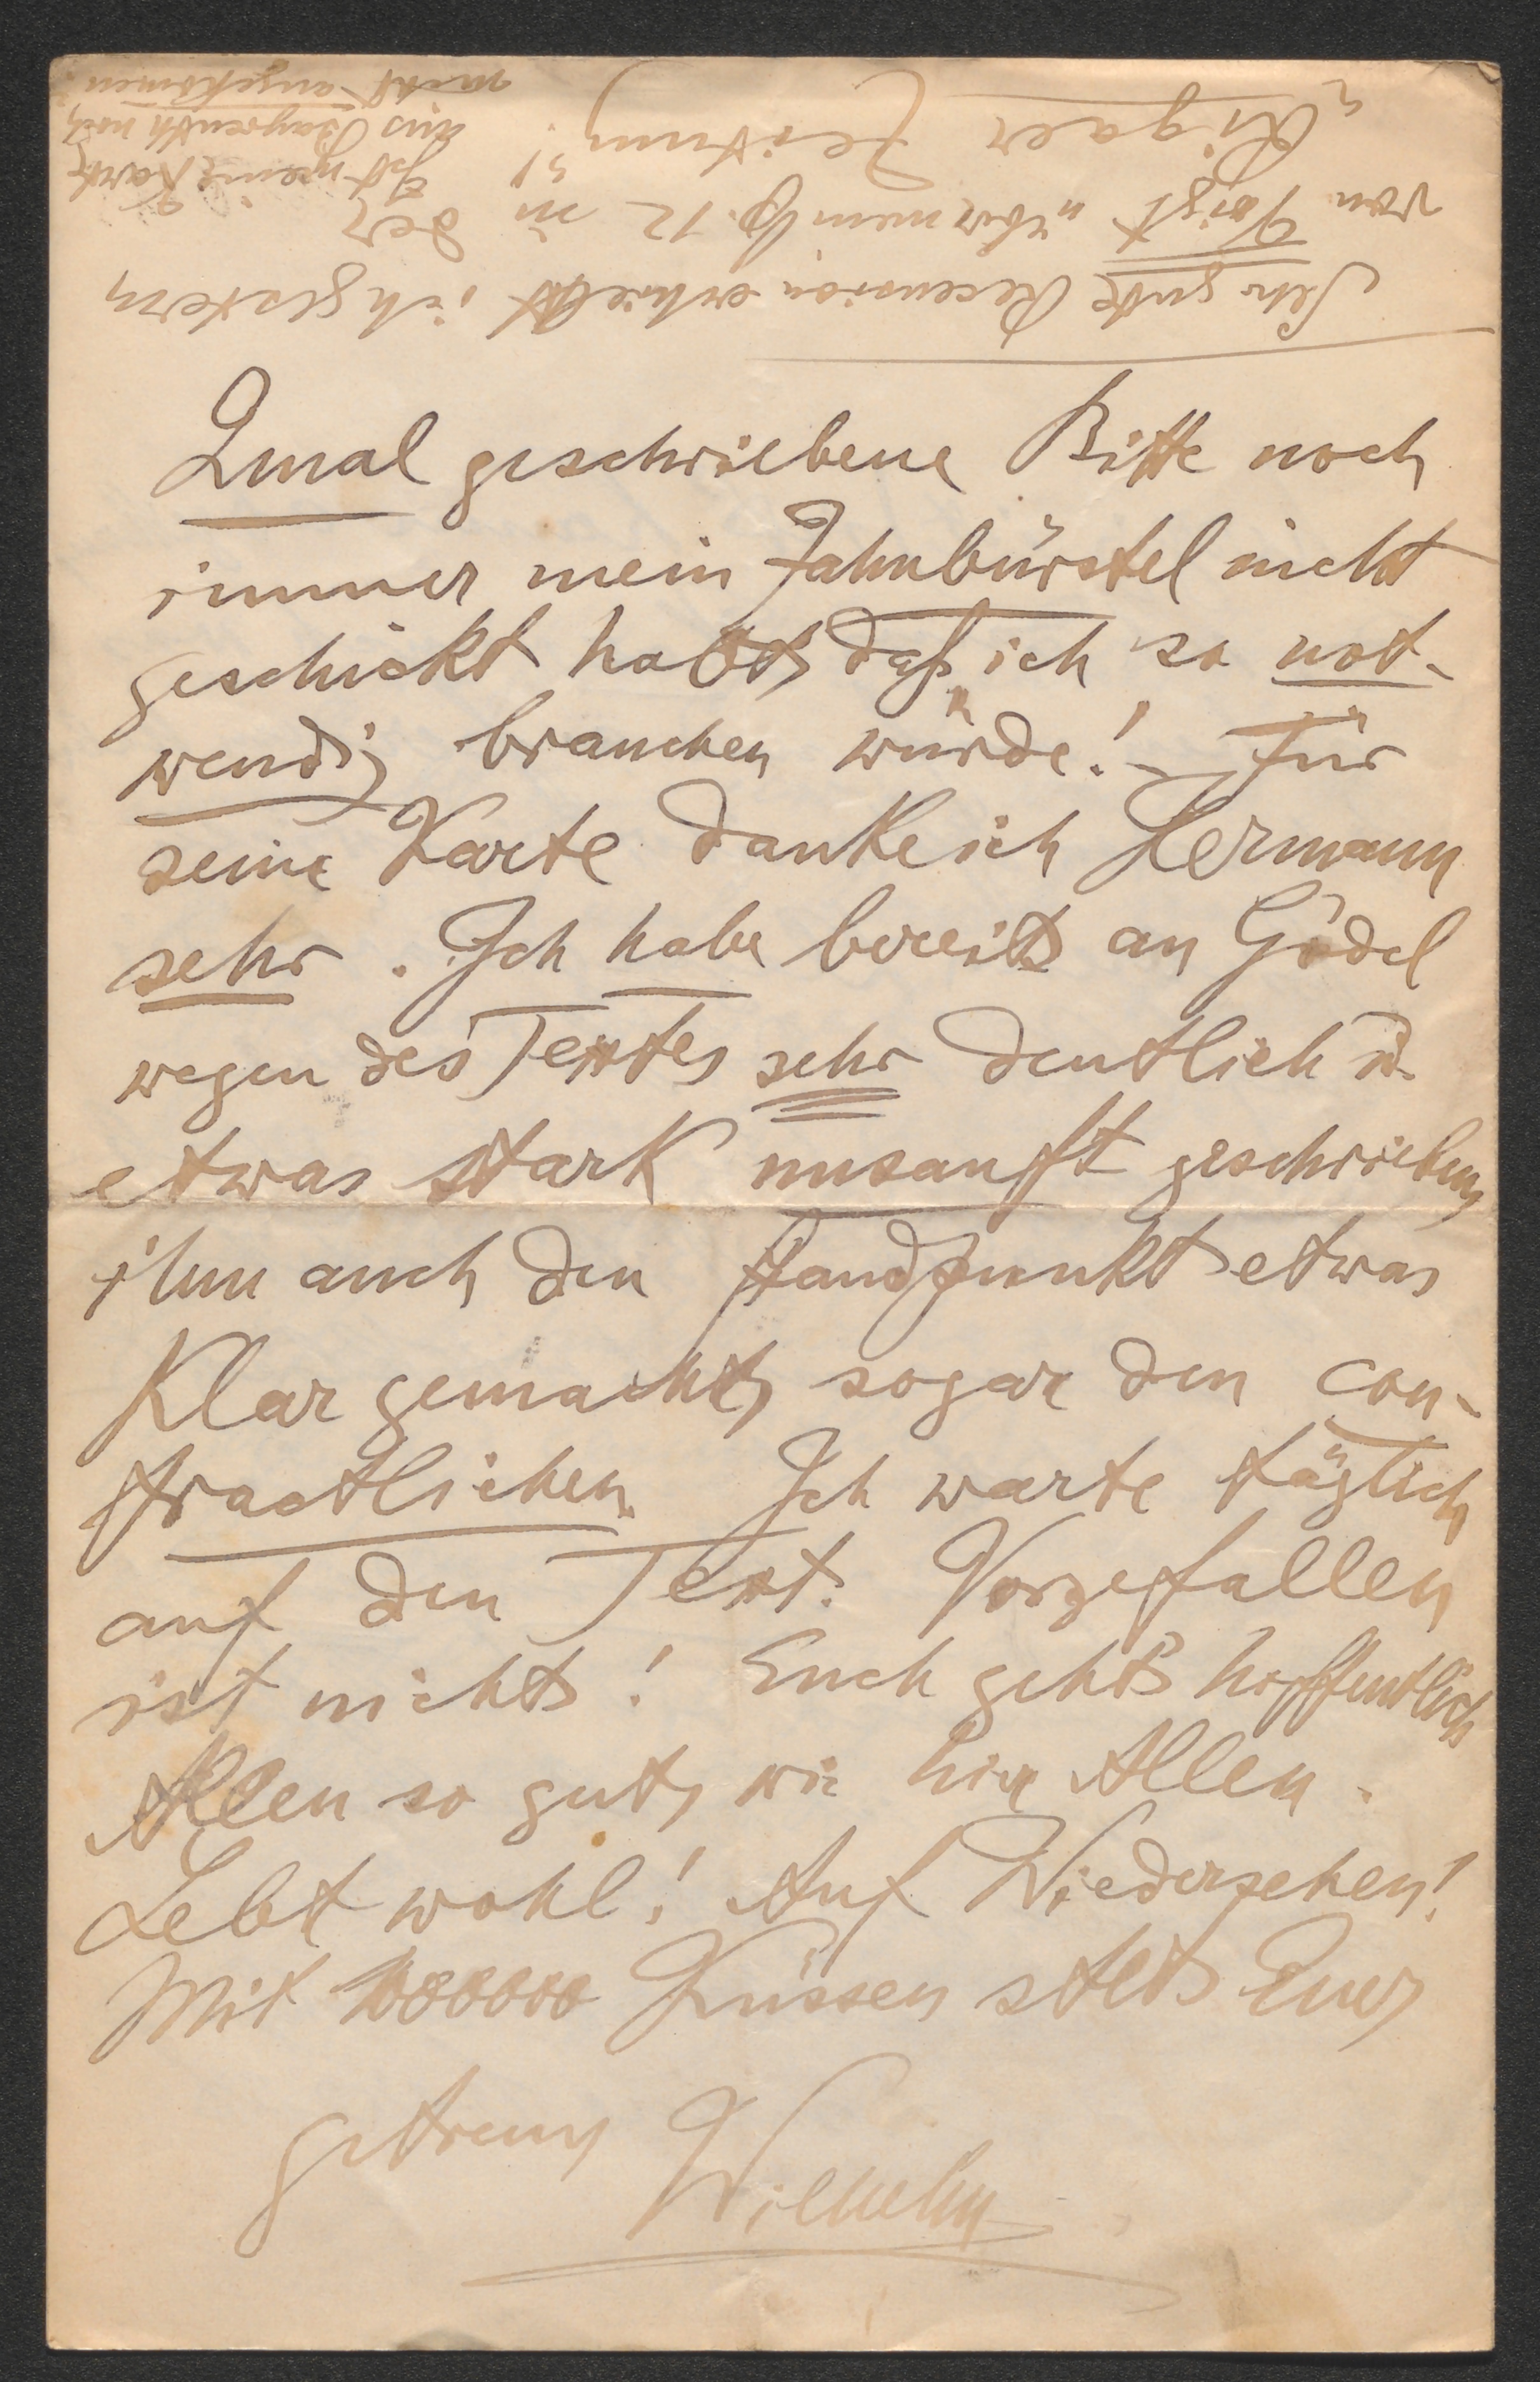 2mal geschriebene Bitte noch
immer mein Zahnbürstel nicht
geschickt habt, daß ich so not-
wendig brauchen würde! – Für
seine Karte danke ich Hermann
sehr. Ich habe bereits an Gödel
wegen des Textes sehr deutlich u.
etwas stark unsanft geschrieben,
ihm auch den Standpunkt etwas
klar gemacht, sogar den con-
tractlichen. Ich warte täglich
auf den Text. Vorgefallen
ist nichts! Euch geht's hoffentlich
Allen so gut, wie hier Allen.
Lebt wohl! Auf Wiedersehen!
Mit 1000000 Küssen stets Euer
getreuer Wilhelm
Sehr gute Recension erhielt ich gestern
von Voigt über mein Op. 12 in der
"Rigaer Zeitung"!
Ist meine Karte
aus Bayreuth noch
nicht angekomen?